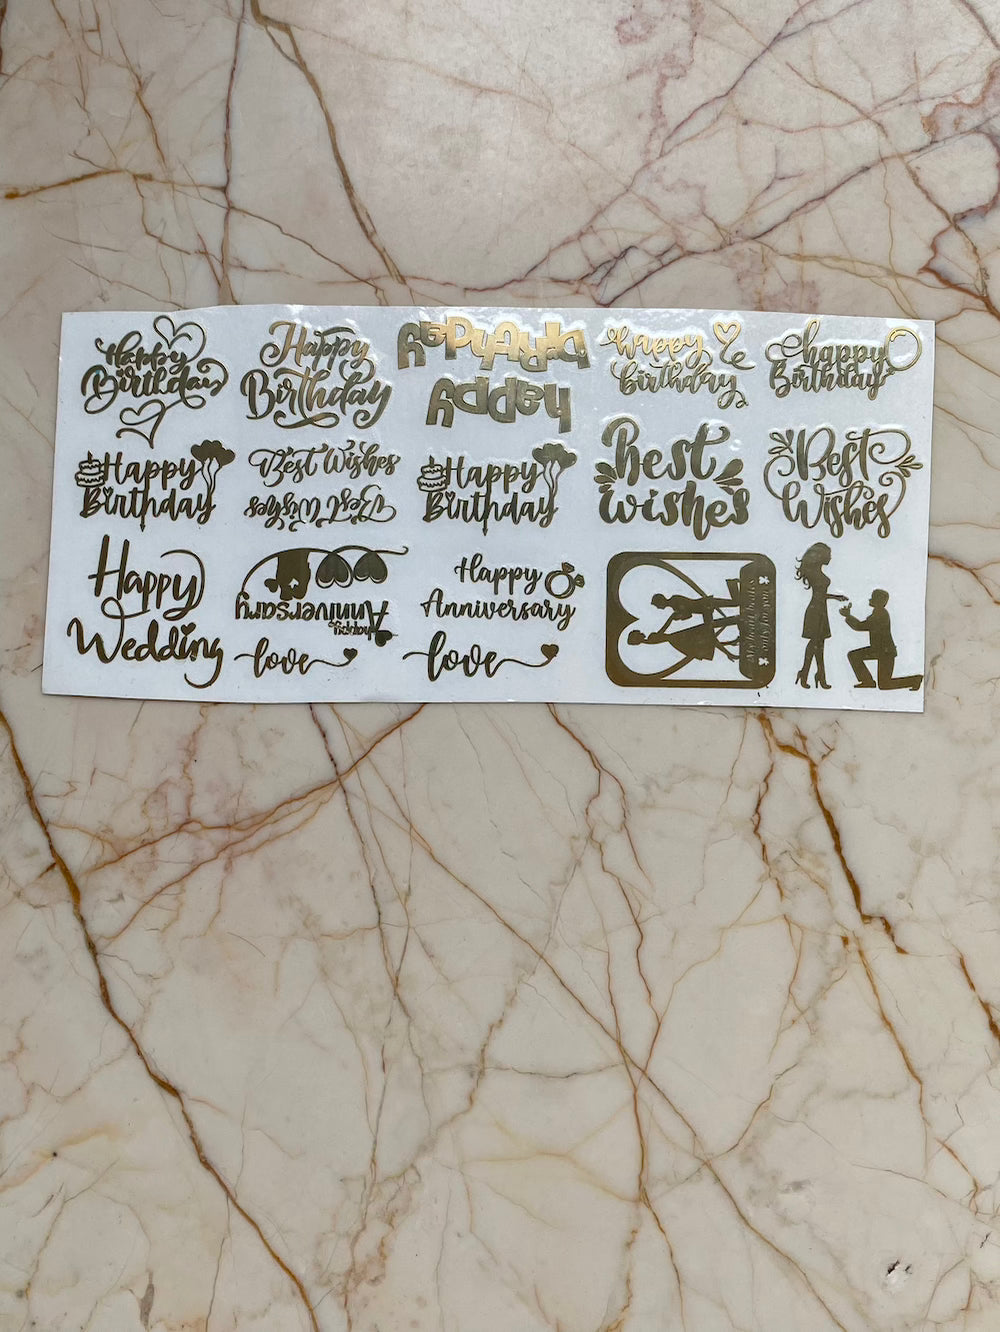 Happy
Birthday
Happy
Birthday
happy
birthday
happy
birthday
happy
Birthday
Happy
Birthday
Best Wishes
Best Wishes
Happy
Birthday
Best
Wishes
Best
Wishes
Happy
Wedding
Happy
Anniversary
love
Happy
Anniversary
love
My heart beats
only for you